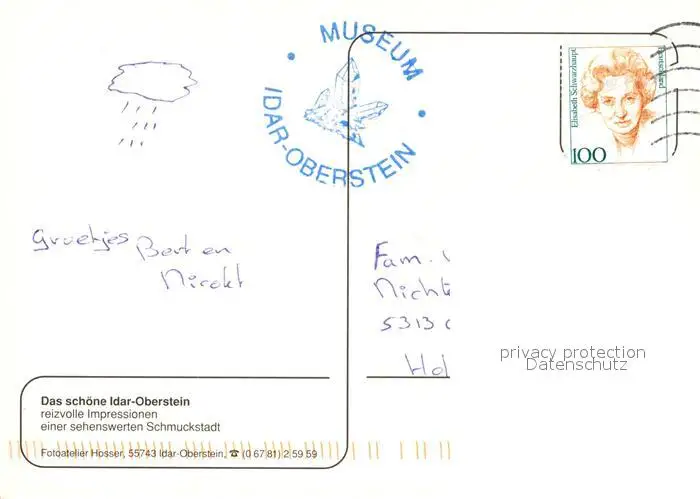 MUSEUM
IDAR-OBERSTEIN
Elisabeth Schwarzhaupt
Deutschland
100
Groetjes Bart en
Fam.
5313
privacy protection
Datenschutz
Das schöne Idar-Oberstein
reizvolle Impressionen
einer sehenswerten Schmuckstadt
Fotoatelier Hosser, 55743 Idar-Oberstein, ☎ (0 67 81) 2 59 59